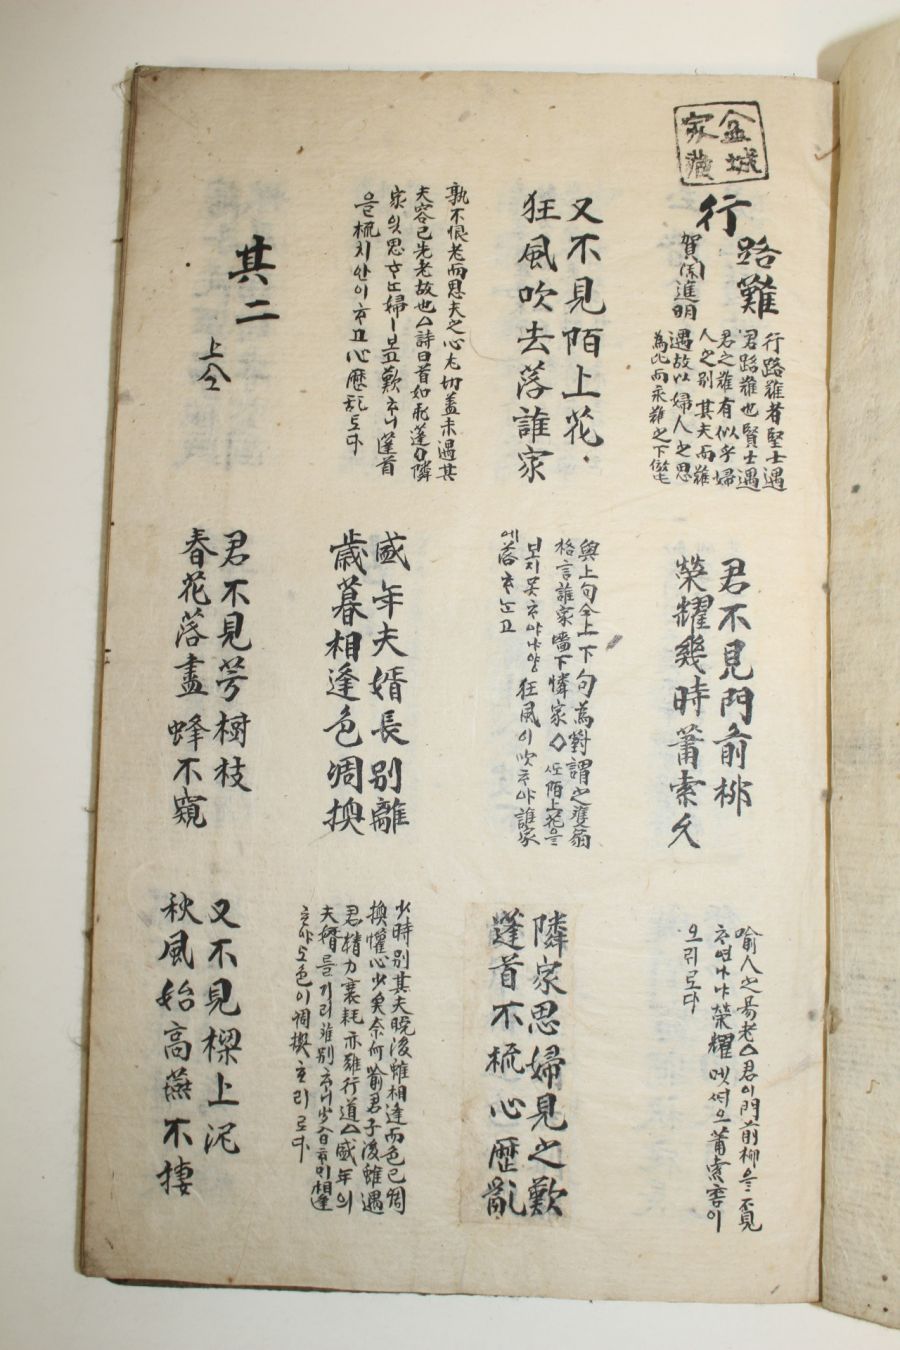 金城
家藏
行路難
賀蘭進明
行路難者堅士遇
君路難也賢士遇
君之難有似乎婦
人之别其夫而難
遇故以婦人之思
君不見門前柳
榮耀幾時蕭索久
喻人之易老△君이門前柳을不見
오리로다
又不見陌上花
狂風吹去落誰家
與上句今上下句為對謂之隻
格言誰家墻下憐家◇또陌上花을
보지못
狂風이吹ᄒᆞ야誰家
에落ᄒᆞ노고
隣家思婦見之歎
蓬首不梳心歷亂
孰不恨老而思夫之心尤切盖未遇其
夫容已先老故也△詩曰首如飛蓬◇隣
家읫思ᄒᆞᄂᆞᆫ婦ㅣ보고歎ᄒᆞ니蓬首
을梳치안이ᄒᆞ고心歷亂도다
盛年夫婿長别離
歲暮相逢色凋換
少時别其夫晩後雖相逢而色已凋
換懽心少矣奈何喻君子後雖遇
君精力衰耗亦難行道△盛年의
色이凋換ᄒᆞ리로다
其二
上仝
君不見芳樹枝
春花落盡蜂不窺
又不見樑上泥
秋風始高燕不棲